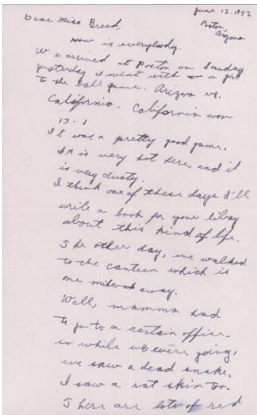 June 12, 1942
Poston
Arizona
Dear Miss Breed,
How is everybody.
We arrived at Poston on Sunday
yesterday I went with a girl
to the ball game. Arizona vs.
California. California won
13-1
It was a pretty good game.
It is very hot here, and it
is very dusty.
I think one of these days I'll
write a book for your libary
about this kind of life.
The other day, we walked
to the canteen which is
one mile away.
Well, mamma had
to go to a certain office.
so while we were going,
we saw a dead snake.
I saw a rat skin too.
There are lots of red